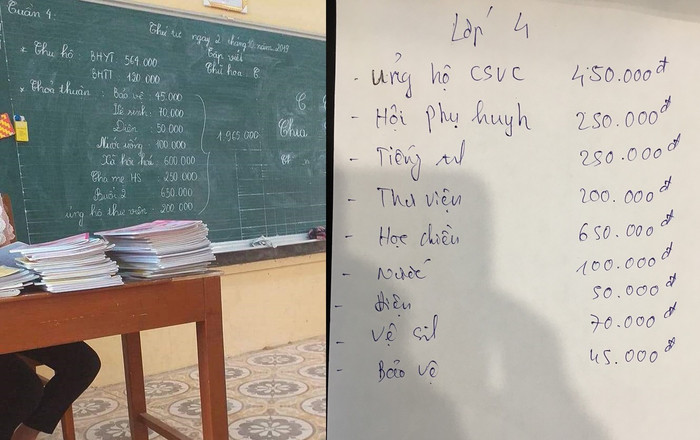 Tuần 4.
Thứ tư ngày 2 tháng 10 năm 2019
Tập viết
* Thu hộ: BHYT 564.000
Chữ hoa
BHTT 120.000
* Thoả thuận: Bảo vệ: 45.000
Vệ sinh: 70,000
Điện: 50.000
1.965.000
Nước uống: 100.000
Xã hội hoá: 600.000
Cha mẹ HS: 250 000
Buổi 2: 650.000
ủng hộ thư viện: 200 000
Lớp 4
- ủng hộ CSVC 450.000đ
- Hội phụ huyh 250.000đ
- Tiếng 250.000đ
- Thư viện 200.000đ
- Học chiều 650.000đ
- Nước 100.000đ
- Điện 50.000đ
- Vệ 70.000đ
- Bảo vệ 45.000đ